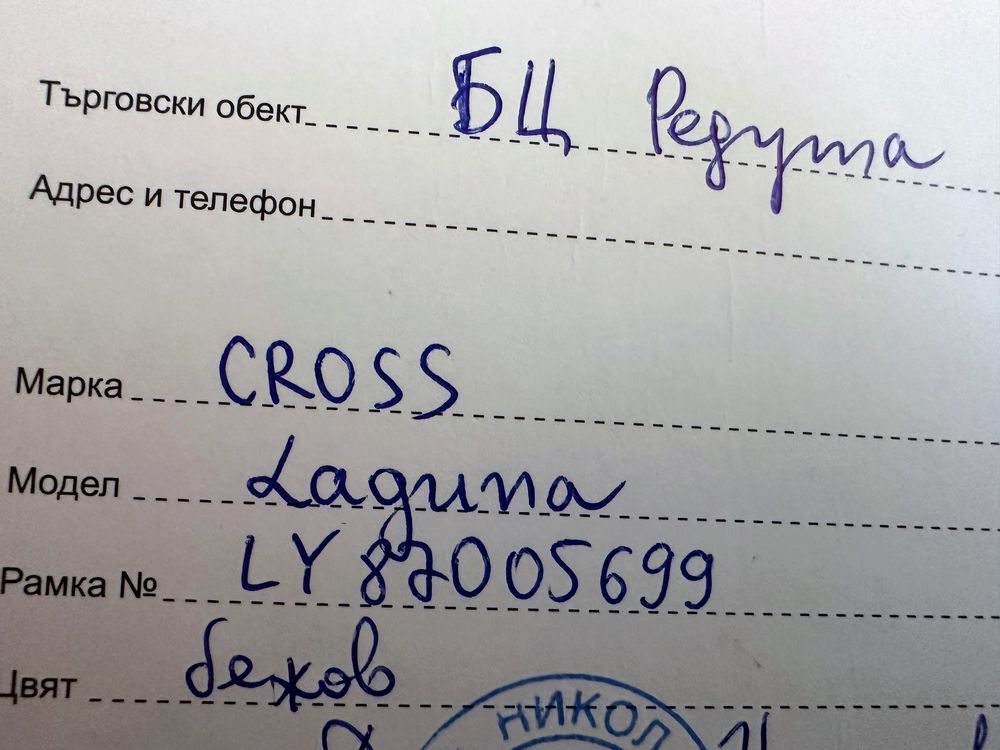 Търговски обект БЦ Редута
Адрес и телефон
Марка CROSS
Модел Laguna
Рамка № LY87005699
Цвят бежов
НИКОЛ